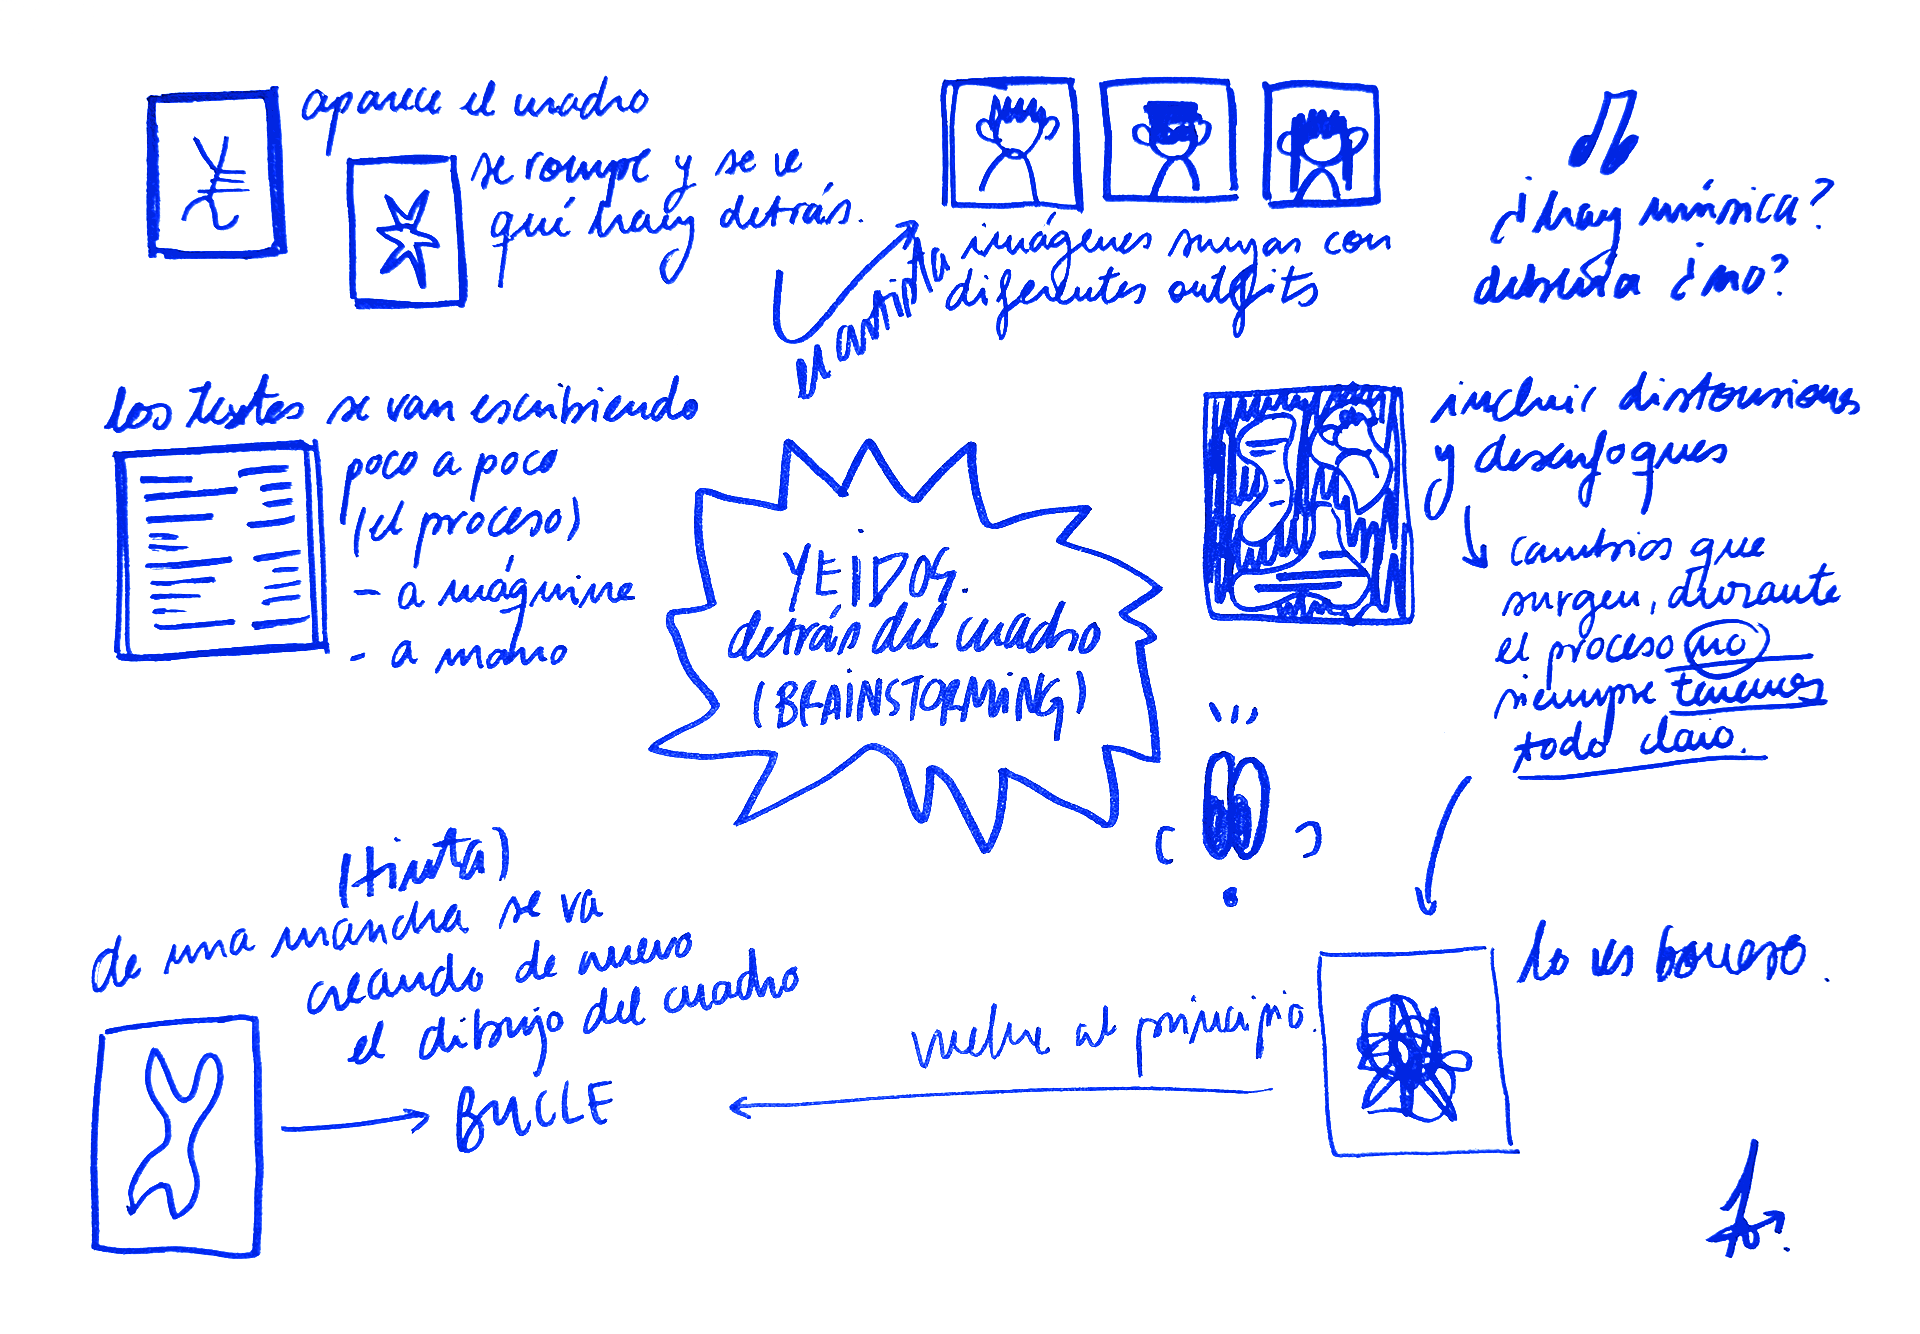 aparece el cuadro
se rompe y se ve
qué hay detrás.
el artista
imágenes suyas con
diferentes outfits
¿hay música?
debería ¿no?
los textos se van escribiendo
poco a poco
(el proceso)
- a máquina
- a mano
YEIDOS.
detrás del cuadro
(BRAINSTORMING)
incluir distorsiones
y desenfoques
cambios que
surgen, durante
el proceso no
siempre tenemos
todo claro.
lo ves borroso.
vuelve al principio.
(tinta)
de una mancha se va
creando de nuevo
el dibujo del cuadro
BUCLE